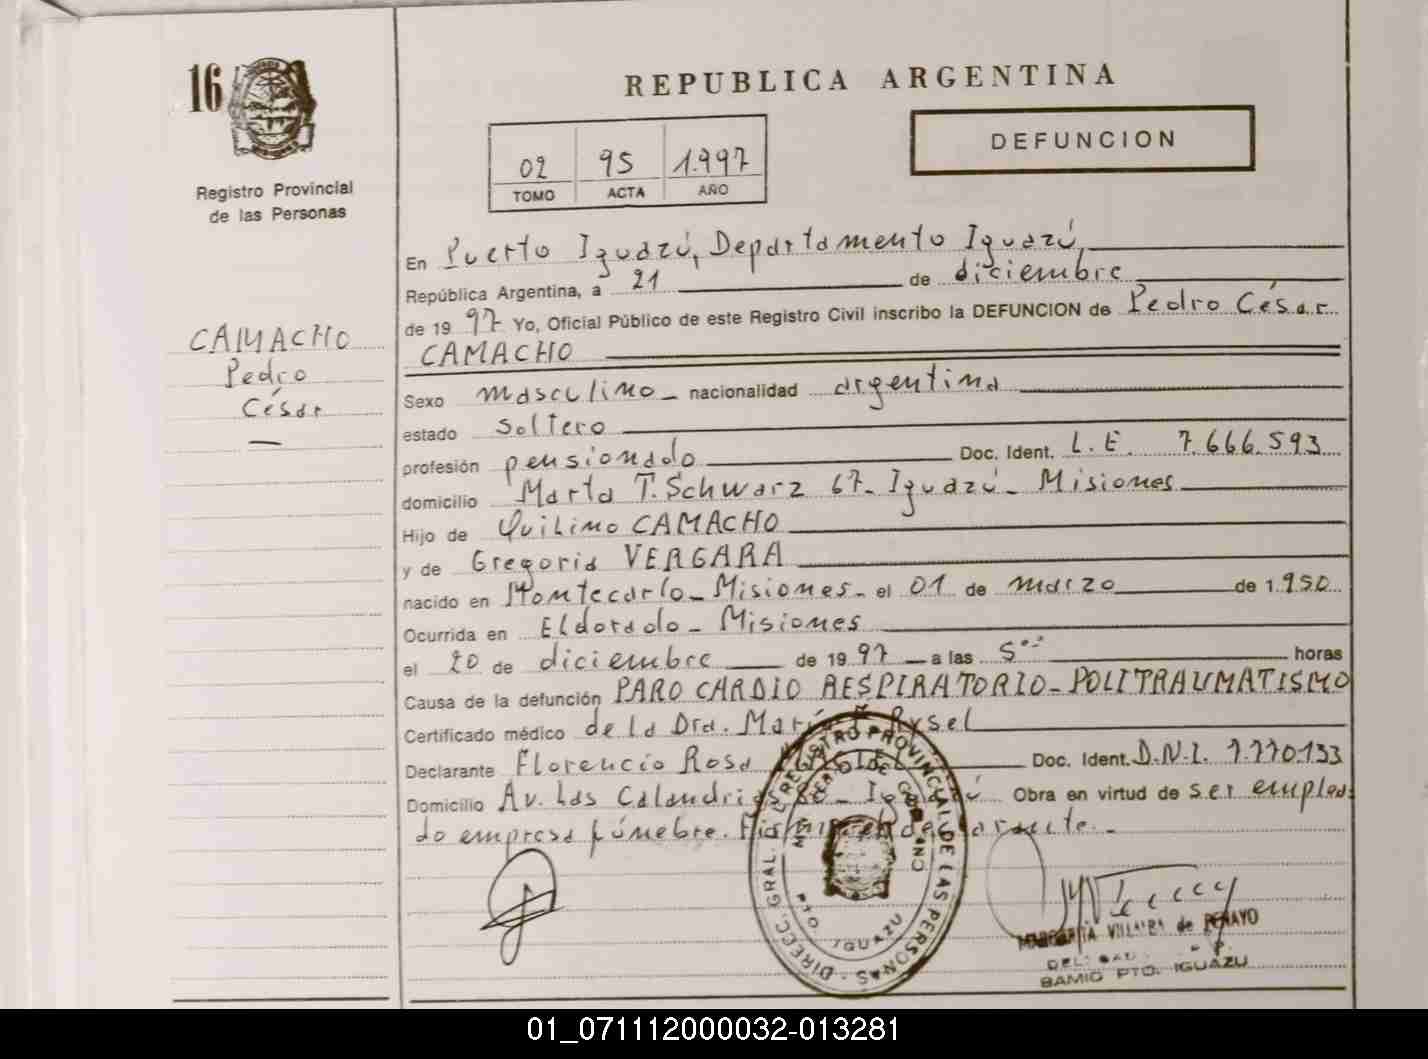 16
Registro Provincial
de las Personas
CAMACHO
Pedro
César
REPUBLICA ARGENTINA
DEFUNCION
02 95 1.997
TOMO ACTA AÑO
En Puerto Iguazú, Departamento Iguazú,
República Argentina, a 21 de diciembre
de 1997 Yo, Oficial Público de este Registro Civil inscribo la DEFUNCION de Pedro César
CAMACHO
Sexo masculino nacionalidad argentina
estado soltero
profesión pensionado Doc. Ident. L.E. 7.666.593
domicilio Marta T. Schwarz 67- Iguazú - Misiones
Hijo de Quilino CAMACHO
y de Gregoria VERGARA
nacido en Montecarlo - Misiones - el 01 de marzo de 1.950
Ocurrida en Eldorado - Misiones
el 20 de diciembre de 1997 a las 5 horas
Causa de la defunción PARO CARDIO RESPIRATORIO - POLITRAUMATISMO
Certificado médico de la Dra. María Rysel
Declarante Florencio Rosa Doc. Ident. D.N.I. 7.770.133
Domicilio Av. Las Obra en virtud de ser emplea
do empresa fúnebre.
DIRECC. GRAL. REGISTRO PROVINCIAL DE LAS PERSONAS
PTO. IGUAZU
MARGARITA de
BAMIO PTO. IGUAZU
01_071112000032-013281